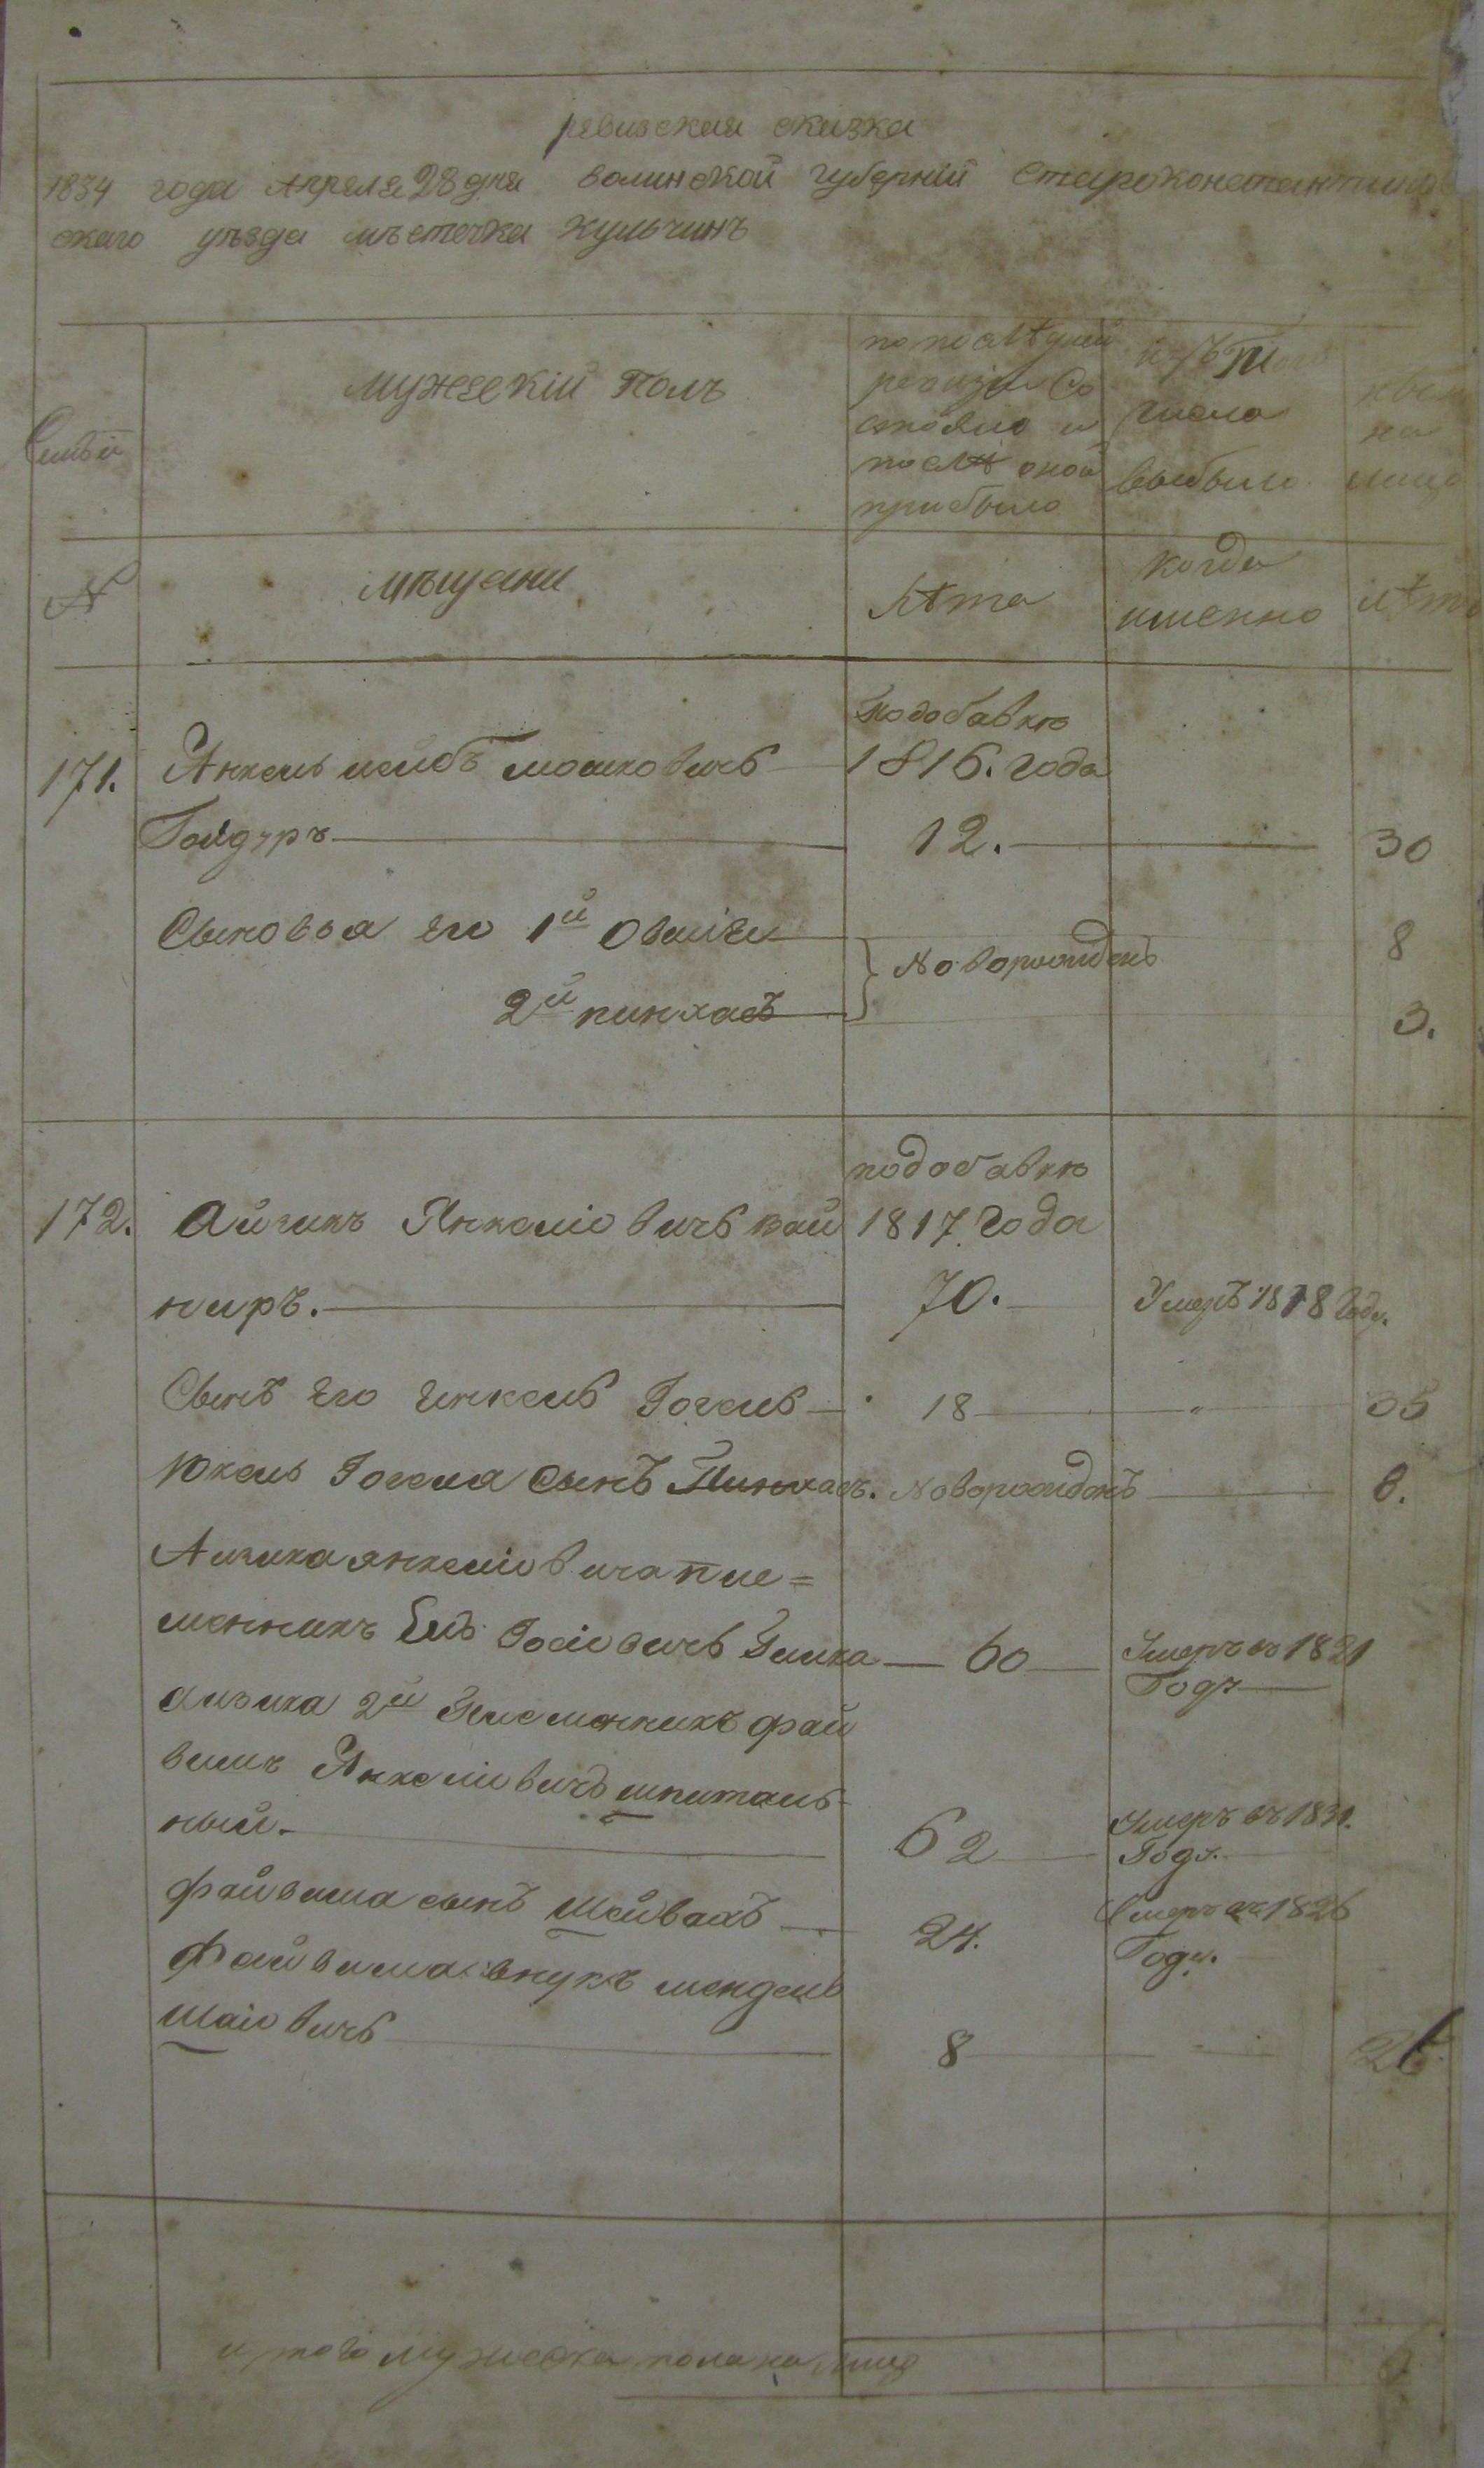 ревизская сказка
1834 года Апреля 28 дня волинской губерніи Староконстантинов
скаго уѣзда мѣстечка Кульчинъ
Семьи
мужескій Полъ
по послѣдней
ревизіи Со
стояло и
послѣ оной
прибыло
изъ Того
числа
выбыло
нынѣ
на
лицо
№
мѣщани
лѣта
когда
именно
лѣта
подобавкѣ
171. Янкель лейбъ мошковичъ 1816. года
12. 30
Сыновья Его 1й Овшій 8
Новорождены
2й пинхасъ 3.
подобавкѣ
172. Айзикъ Янкеліовичъ вай 1817. года
ниръ. 70. Умеръ 1818 Году.
Сынъ Его Юкель Гогель 18 35
Юкель Гогеля Сынъ Пинхасъ. Новорожденъ 6.
Аизика янкеліовича пле=
менникъ Госіовичъ 60 Умеръ въ 1821
Году
аизика 2й Племенникъ фай
вишъ Янкеліовичъ шпиталь-
ный. 62 Умеръ въ 1831.
Году.
файвиша сынъ Шейвахъ 24. Умеръ въ 1826
Году.
Файвиша внукъ мендель
Шаіовичъ 8
итого мужеска пола на лицо